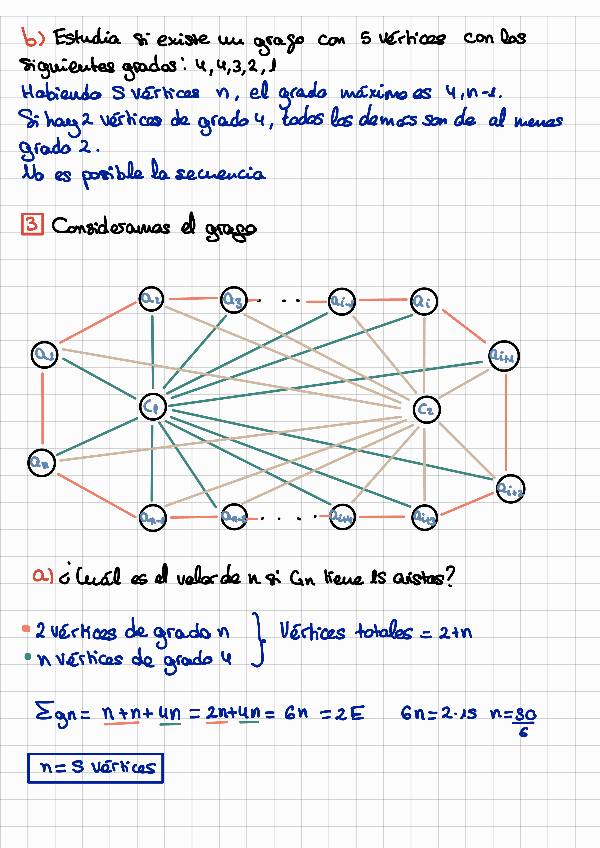 b) Estudia si existe un grago con 5 vértices con los
siguientes grados: 4,4,3,2,1
Habiendo 5 vértices n, el grado máximo es 4, n-1.
Si hay 2 vértices de grado 4, todos los demas son de al menos
grado 2.
No es posible la secuencia
3 Consideramos el grago
a2 a3 · · · ai-1 ai
a1 ai+1
C1 C2
an ai+2
an-1 an-2 · · · · ai+4 ai+3
a) ¿Cuál es el valor de n si Gn tiene 15 aristas?
• 2 vértices de grado n } Vértices totales = 2+n
• n vértices de grado 4
Σgn = n+n+4n = 2n+4n = 6n = 2E 6n=2·15 n=30/6
n = 5 vértices